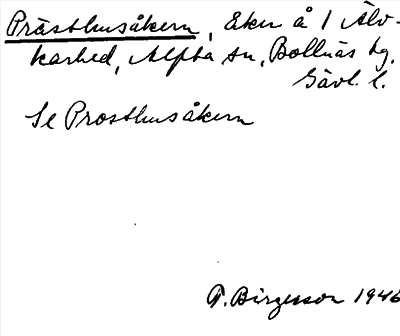 Prästhusåkern, åker å 1 Älv-
karhed, Alfta sn, Bollnäs tg.
Gävl. l.
Se Prosthusåkern
P. Birgerson 1946